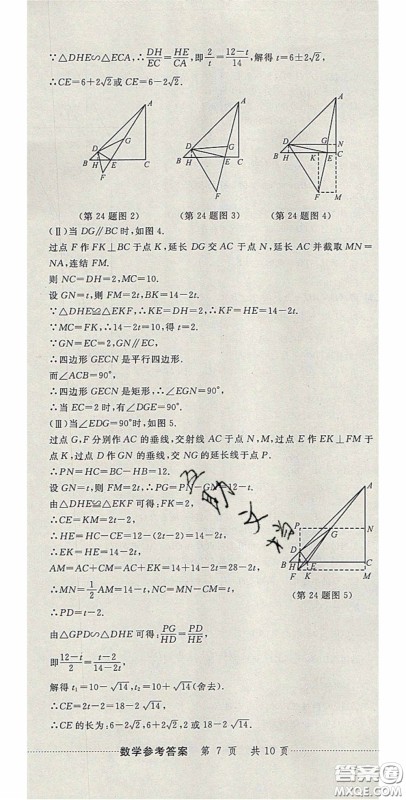 ∵△DHE∽△ECA,∴DH/EC=HE/CA,即2/t=(12-t)/14,解得t=6±2√2,
∴CE=6+2√2或CE=6-2√2.
(第24题图2)
(第24题图3)
(第24题图4)
(Ⅱ)当DG∥BC时,如图4.
过点F作FK⊥BC于点K,延长DG交AC于点N,延长AC并截取MN=
NA,连结FM.
则NC=DH=2,MC=10.
设GN=t,则FM=2t,BK=14-2t.
∵△DHE≌△EKF,∴KE=DH=2,∴KF=HE=14-2t.
∵MC=FK,∴14-2t=10,得t=2.
∵GN=EC=2,GN∥EC,
∴四边形GECN是平行四边形.
而∠ACB=90°,
∴四边形GECN是矩形,∴∠EGN=90°.
∴当EC=2时,有∠DGE=90°.
(Ⅲ)当∠EDG=90°时,如图5.
过点G,F分别作AC的垂线,交射线AC于点N,M,过点E作EK⊥FM于
点K,过点D作GN的垂线,交NG的延长线于点P.
∴PN=HC=BC-HB=12.
设GN=t,则FM=2t,∴PG=PN-GN=12-t.
由△DHE≌△EKF可得:FK=2,
∴CE=KM=2t-2,
∴HE=HC-CE=12-(2t-2)=14-2t,
∴EK=HE=14-2t,
AM=AC+CM=AC+EK=14+14-2t=28-2t,
∴MN=1/2AM=14-t,NC=MN-CM=t,
∴PD=t-2.
由△GPD∽△DHE可得:PG/HD=PD/HE,
即(12-t)/2=(t-2)/(14-2t),
解得t₁=10-√14,t₂=10+√14(舍去).
∴CE=2t-2=18-2√14,
∴CE的长为:6-2√2,6+2√2,2或18-2√14.
(第24题图5)
数学参考答案 第7页 共10页